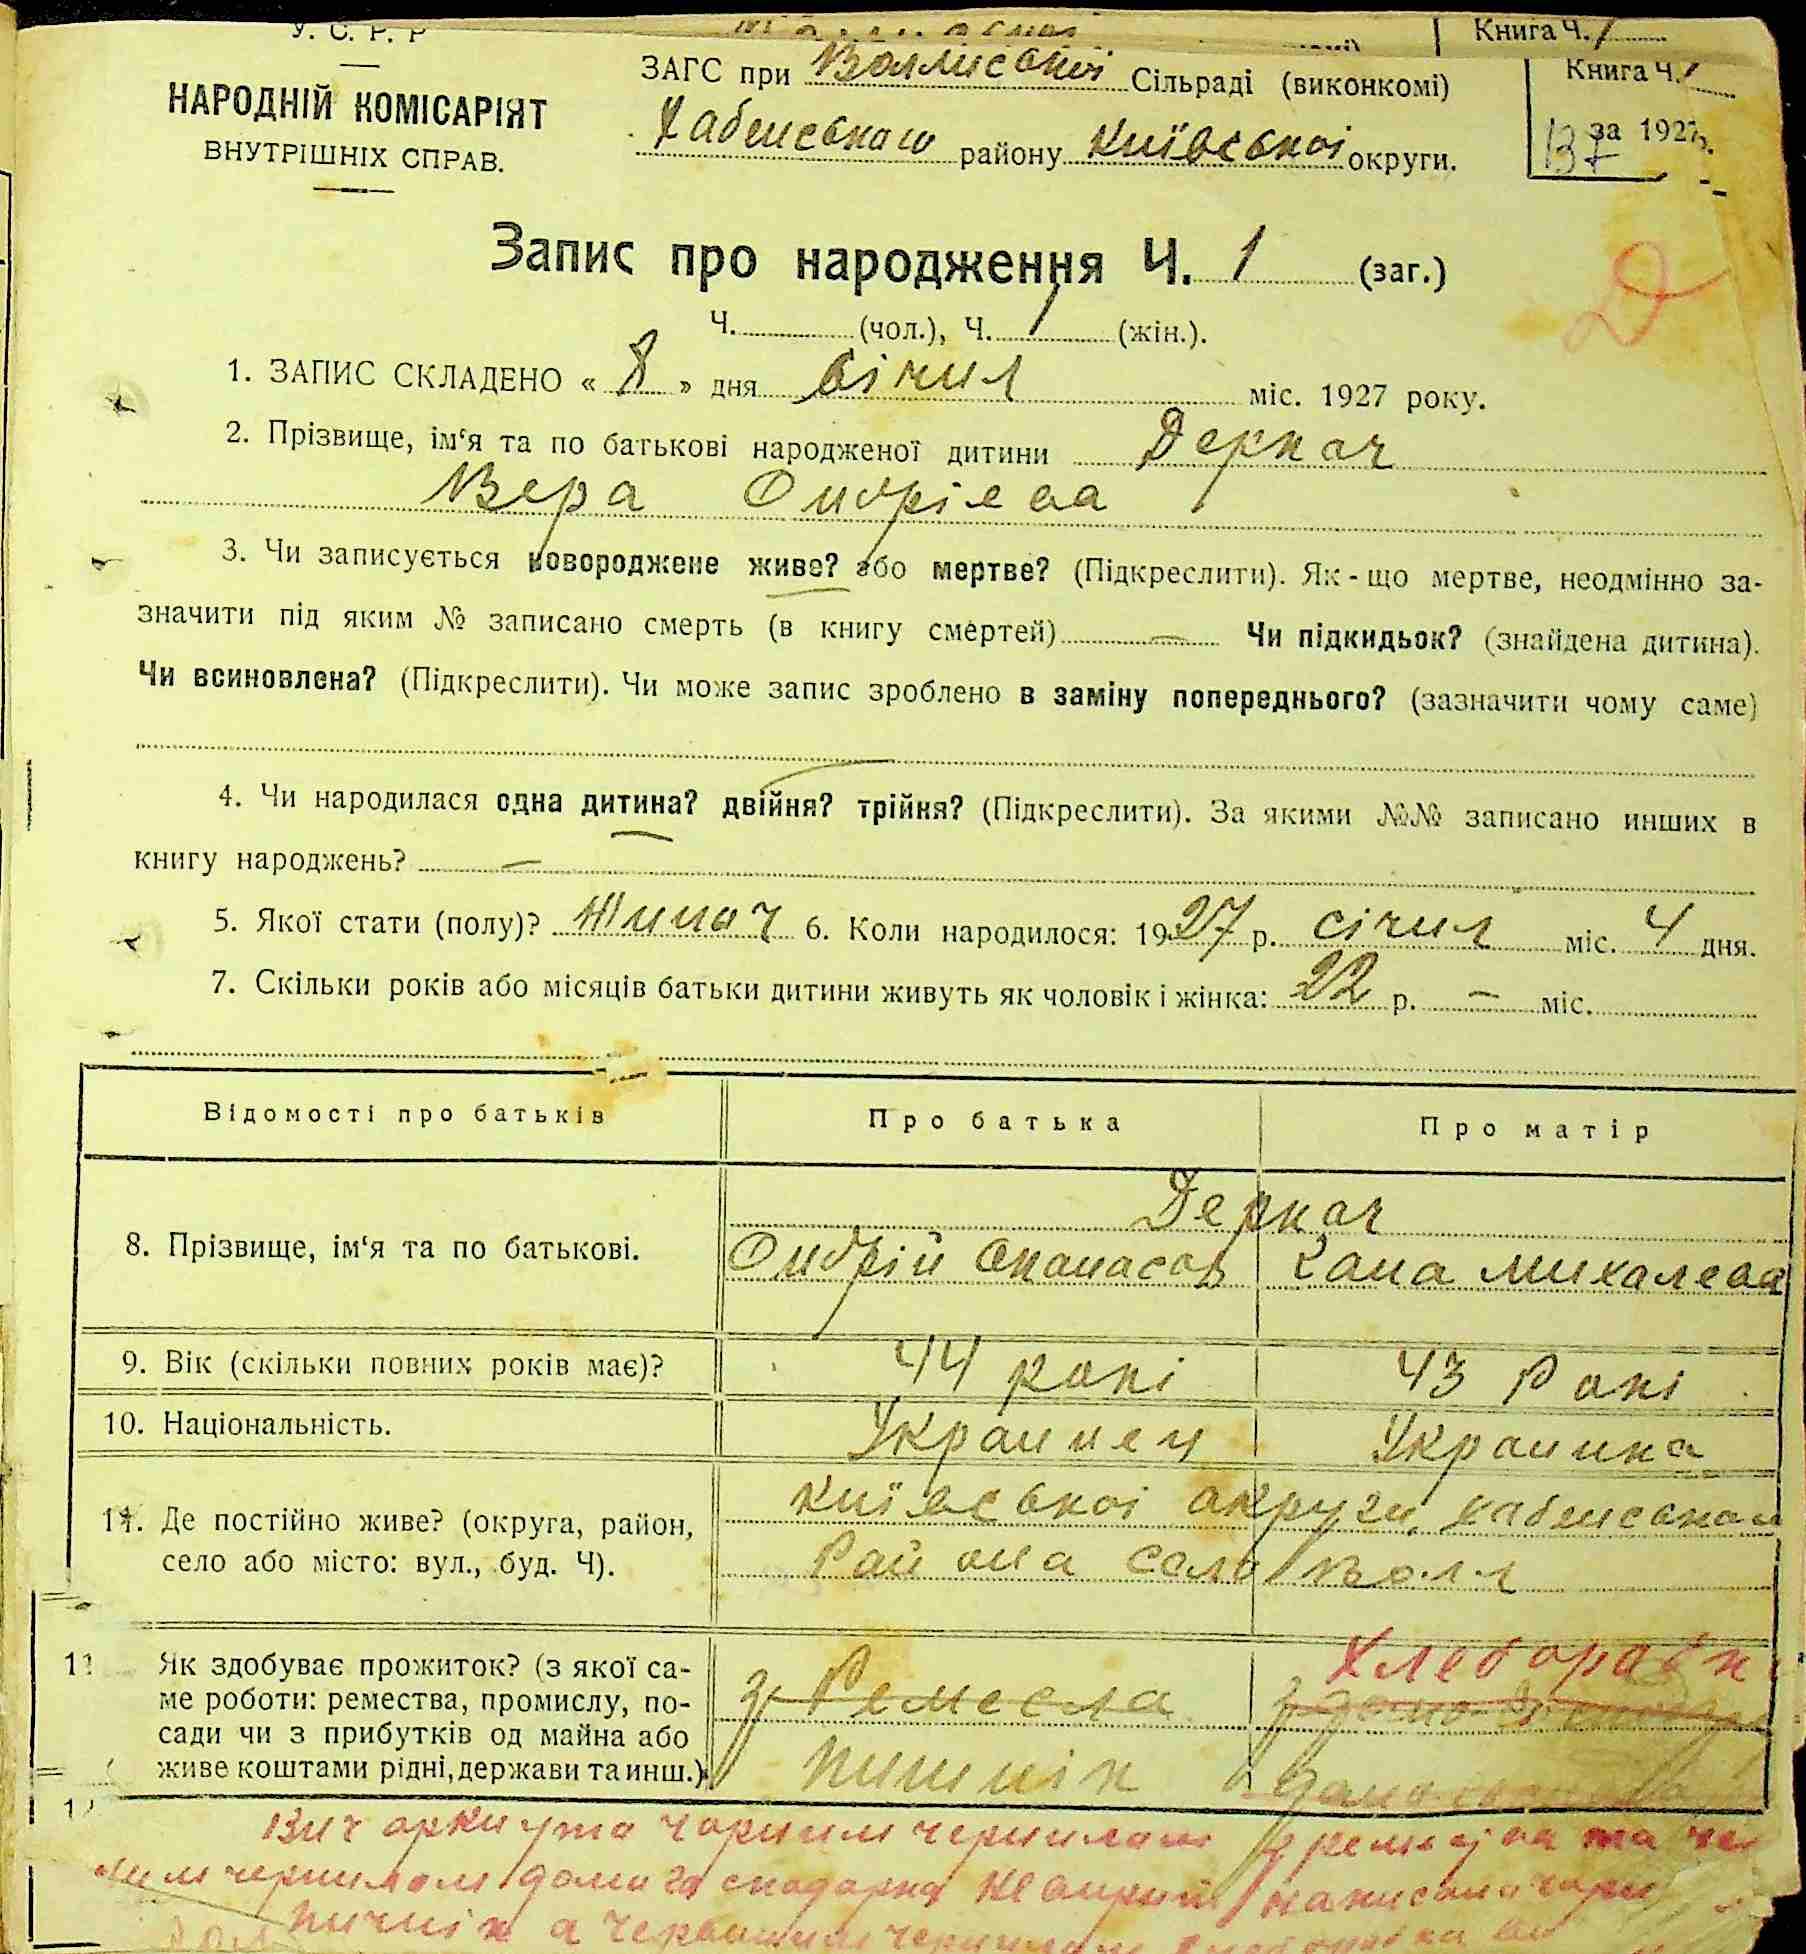 Книга Ч. 1
У. С. Р. Р
НАРОДНІЙ КОМІСАРІЯТ
ВНУТРІШНІХ СПРАВ.
ЗАГС при Волянської Сільраді (виконкомі)
Хабенського району Київської округи.
Книга Ч. 1
за 1927 р.
137
Запис про народження Ч. 1 (заг.)
Ч. (чол.), Ч. 1 (жін.).
Д
1. ЗАПИС СКЛАДЕНО « 8 » дня січня міс. 1927 року.
2. Прізвище, ім‘я та по батькові народженої дитини Деркач
Вера Ондрієва
3. Чи записується новороджене живе? або мертве? (Підкреслити). Як-що мертве, неодмінно за-
значити під яким № записано смерть (в книгу смертей) — Чи підкидьок? (знайдена дитина).
Чи всиновлена? (Підкреслити). Чи може запис зроблено в заміну попереднього? (зазначити чому саме)
4. Чи народилася одна дитина? двійня? трійня? (Підкреслити). За якими №№ записано инших в
книгу народжень? —
5. Якої стати (полу)? 6. Коли народилося: 1927 р. січня міс. 4 дня.
7. Скільки років або місяців батьки дитини живуть як чоловік і жінка: 22 р. — міс.
Відомості про батьків Про батька Про матір
8. Прізвище, ім‘я та по батькові.
Деркач
Ондрій Опанасов Михалева
9. Вік (скільки повних років має)? 44 рокі 43 Рокі
10. Національність. Украинец Украинка
11. Де постійно живе? (округа, район,
село або місто: вул., буд. Ч).
Київської округи, хабенського
Района село
Як здобуває прожиток? (з якої са-
ме роботи: ремества, промислу, по-
сади чи з прибутків од майна або
живе коштами рідні, держави та инш.)
з Ремесла
Хлебороб
черним чернилом
чернилом домо господарка написано
а червоним чернилом